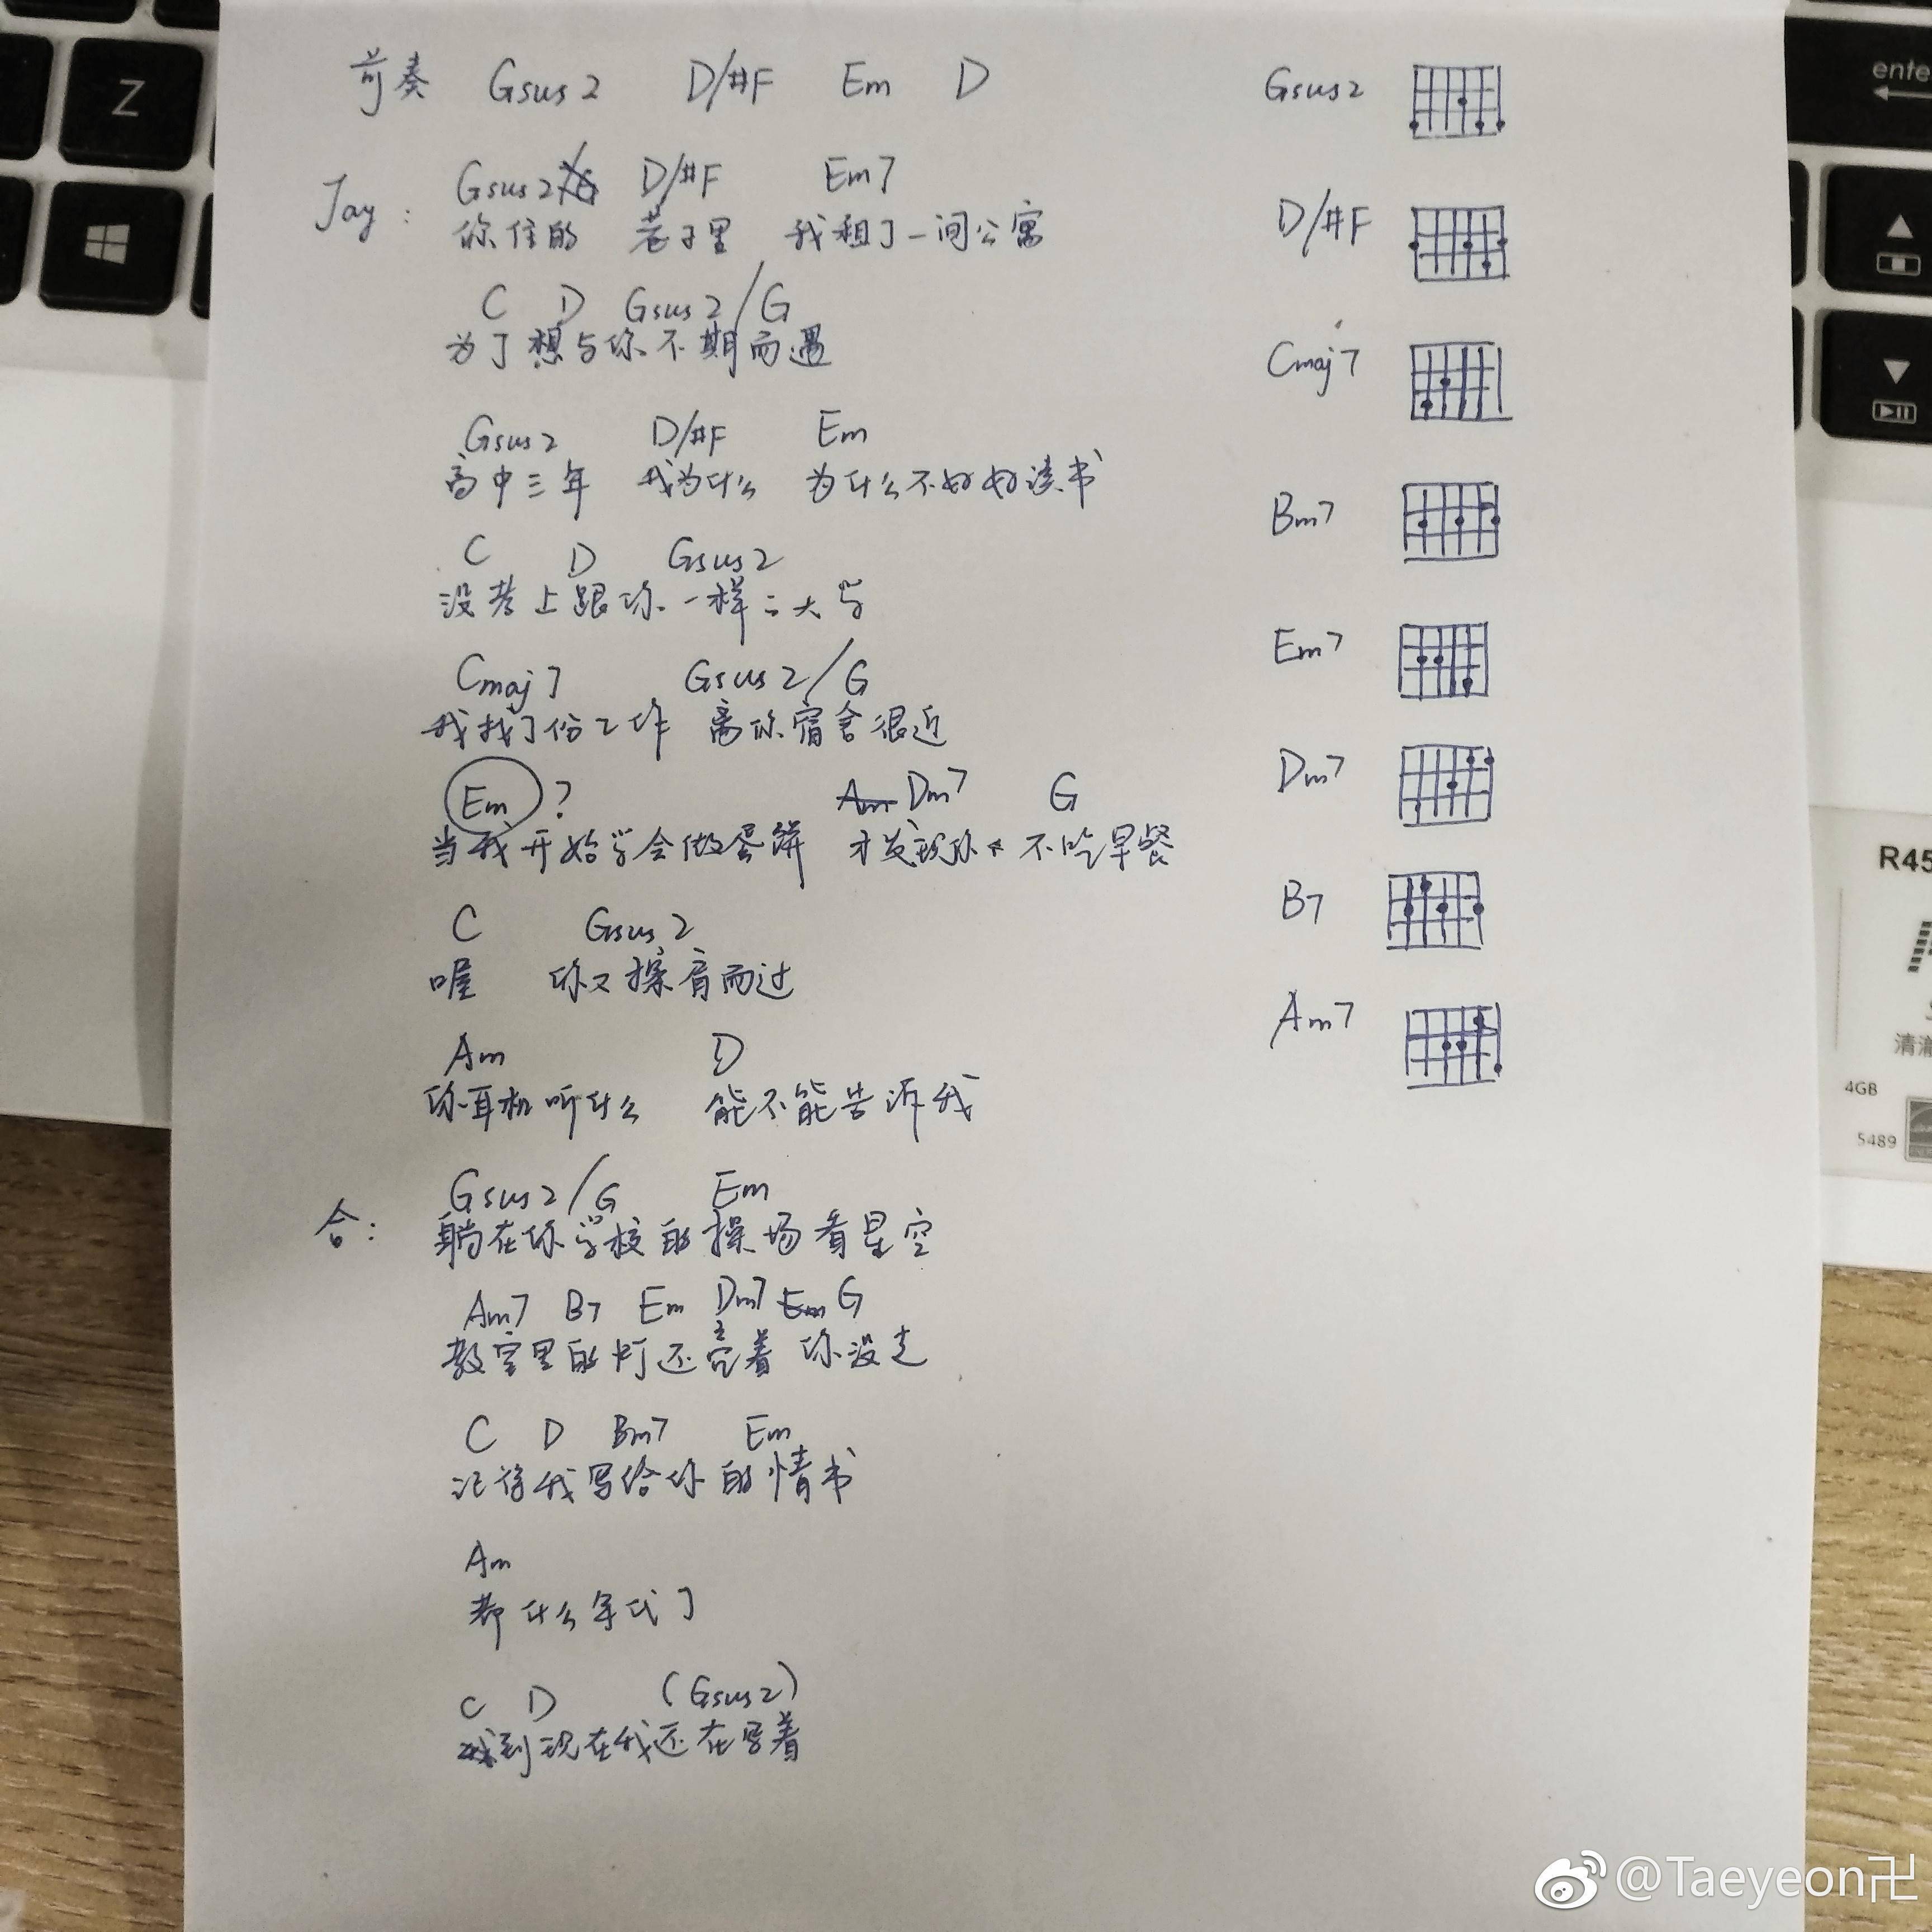 前奏 Gsus2 D/#F Em D
Jay:
Gsus2 D/#F Em7
你住的 巷子里 我租了一间公寓
C D Gsus2/G
为了想与你不期而遇
Gsus2 D/#F Em
高中三年 我为什么 为什么不好好读书
C D Gsus2
没考上跟你一样的大学
Cmaj7 Gsus2/G
我找了份工作 离你宿舍很近
Em ? Am Dm7 G
当我开始学会做蛋饼 才发现你 不吃早餐
C Gsus2
喔 你又擦肩而过
Am D
你耳机听什么 能不能告诉我
合:
Gsus2/G Em
躺在你学校的操场看星空
Am7 B7 Em Dm7 Em G
教室里的灯还亮着 你没走
C D Bm7 Em
记得我写给你的情书
Am
都什么年代了
C D (Gsus2)
到现在我还在写着
Gsus2
D/#F
Cmaj7
Bm7
Em7
Dm7
B7
Am7
Z
enter
R45
清澈
4GB
5489
@Taeyeon卍